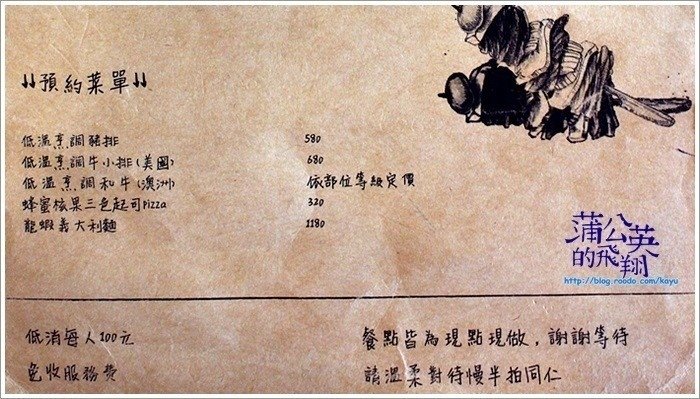 ↓↓預約菜單↓↓
低溫烹調豬排 580
低溫烹調牛小排(美國) 680
低溫烹調和牛(澳洲) 依部位等級定價
蜂蜜核果三色起司pizza 320
龍蝦義大利麵 1180
低消每人100元
免收服務費
餐點皆為現點現做，謝謝等待
請溫柔對待慢半拍同仁
蒲公英
的飛翔
http://blog.roodo.com/kayu